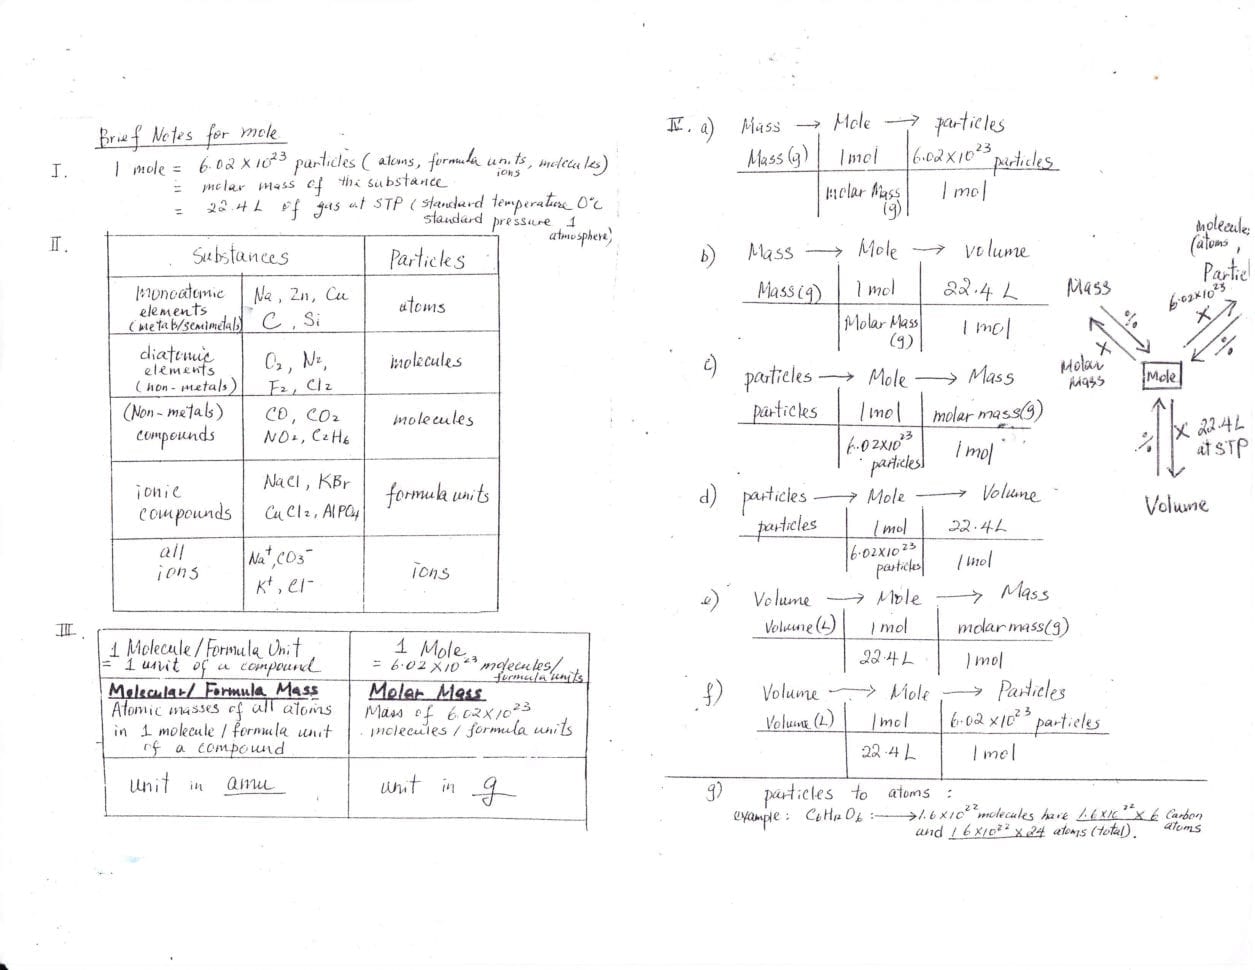 Brief Notes for mole
I. 1 mole = 6.02 x 10²³ particles (atoms, formula units, molecules)
ions
= molar mass of the substance
= 22.4 L of gas at STP (standard temperature 0°C
standard pressure 1
atmosphere)
II.
Substances Particles
Monoatomic elements (metals/semimetals) Na, Zn, Cu C, Si atoms
diatomic elements (non-metals) O₂, N₂, F₂, Cl₂ molecules
(Non-metals) compounds CO, CO₂ NO₂, C₂H₆ molecules
ionic compounds NaCl, KBr CaCl₂, AlPO₄ formula units
all ions Na⁺, CO₃⁻ K⁺, Cl⁻ ions
III.
1 Molecule/Formula Unit
= 1 unit of a compound
1 Mole
= 6.02 x 10²³ molecules/
formula units
Molecular/Formula Mass
Atomic masses of all atoms
in 1 molecule/formula unit
of a compound
Molar Mass
Mass of 6.02x10²³
molecules/formula units
unit in amu
unit in g
IV. a) Mass → Mole → particles
Mass(g) 1mol 6.02x10²³ particles
Molar Mass (g) 1 mol
b) Mass → Mole → volume
Mass(g) 1 mol 22.4 L
Molar Mass (g) 1 mol
c) particles → Mole → Mass
particles 1mol molar mass(g)
6.02x10²³ particles 1mol
d) particles → Mole → Volume
particles 1mol 22.4L
6.02x10²³ particles 1mol
e) Volume → Mole → Mass
Volume(L) 1mol molarmass(g)
22.4L 1mol
f) Volume → Mole → Particles
Volume(L) 1mol 6.02 x10²³ particles
22.4L 1mol
g) particles to atoms :
example: C₆H₁₂O₆ : → 1.6x10²² molecules have 1.6x10²² x 6 Carbon
atoms
and 1.6x10²² x 24 atoms (total).
(atoms,
Mass
6.02x10²³
X
%
%
X
Molar
Mass
Mole
%
X 22.4L
at STP
Volume